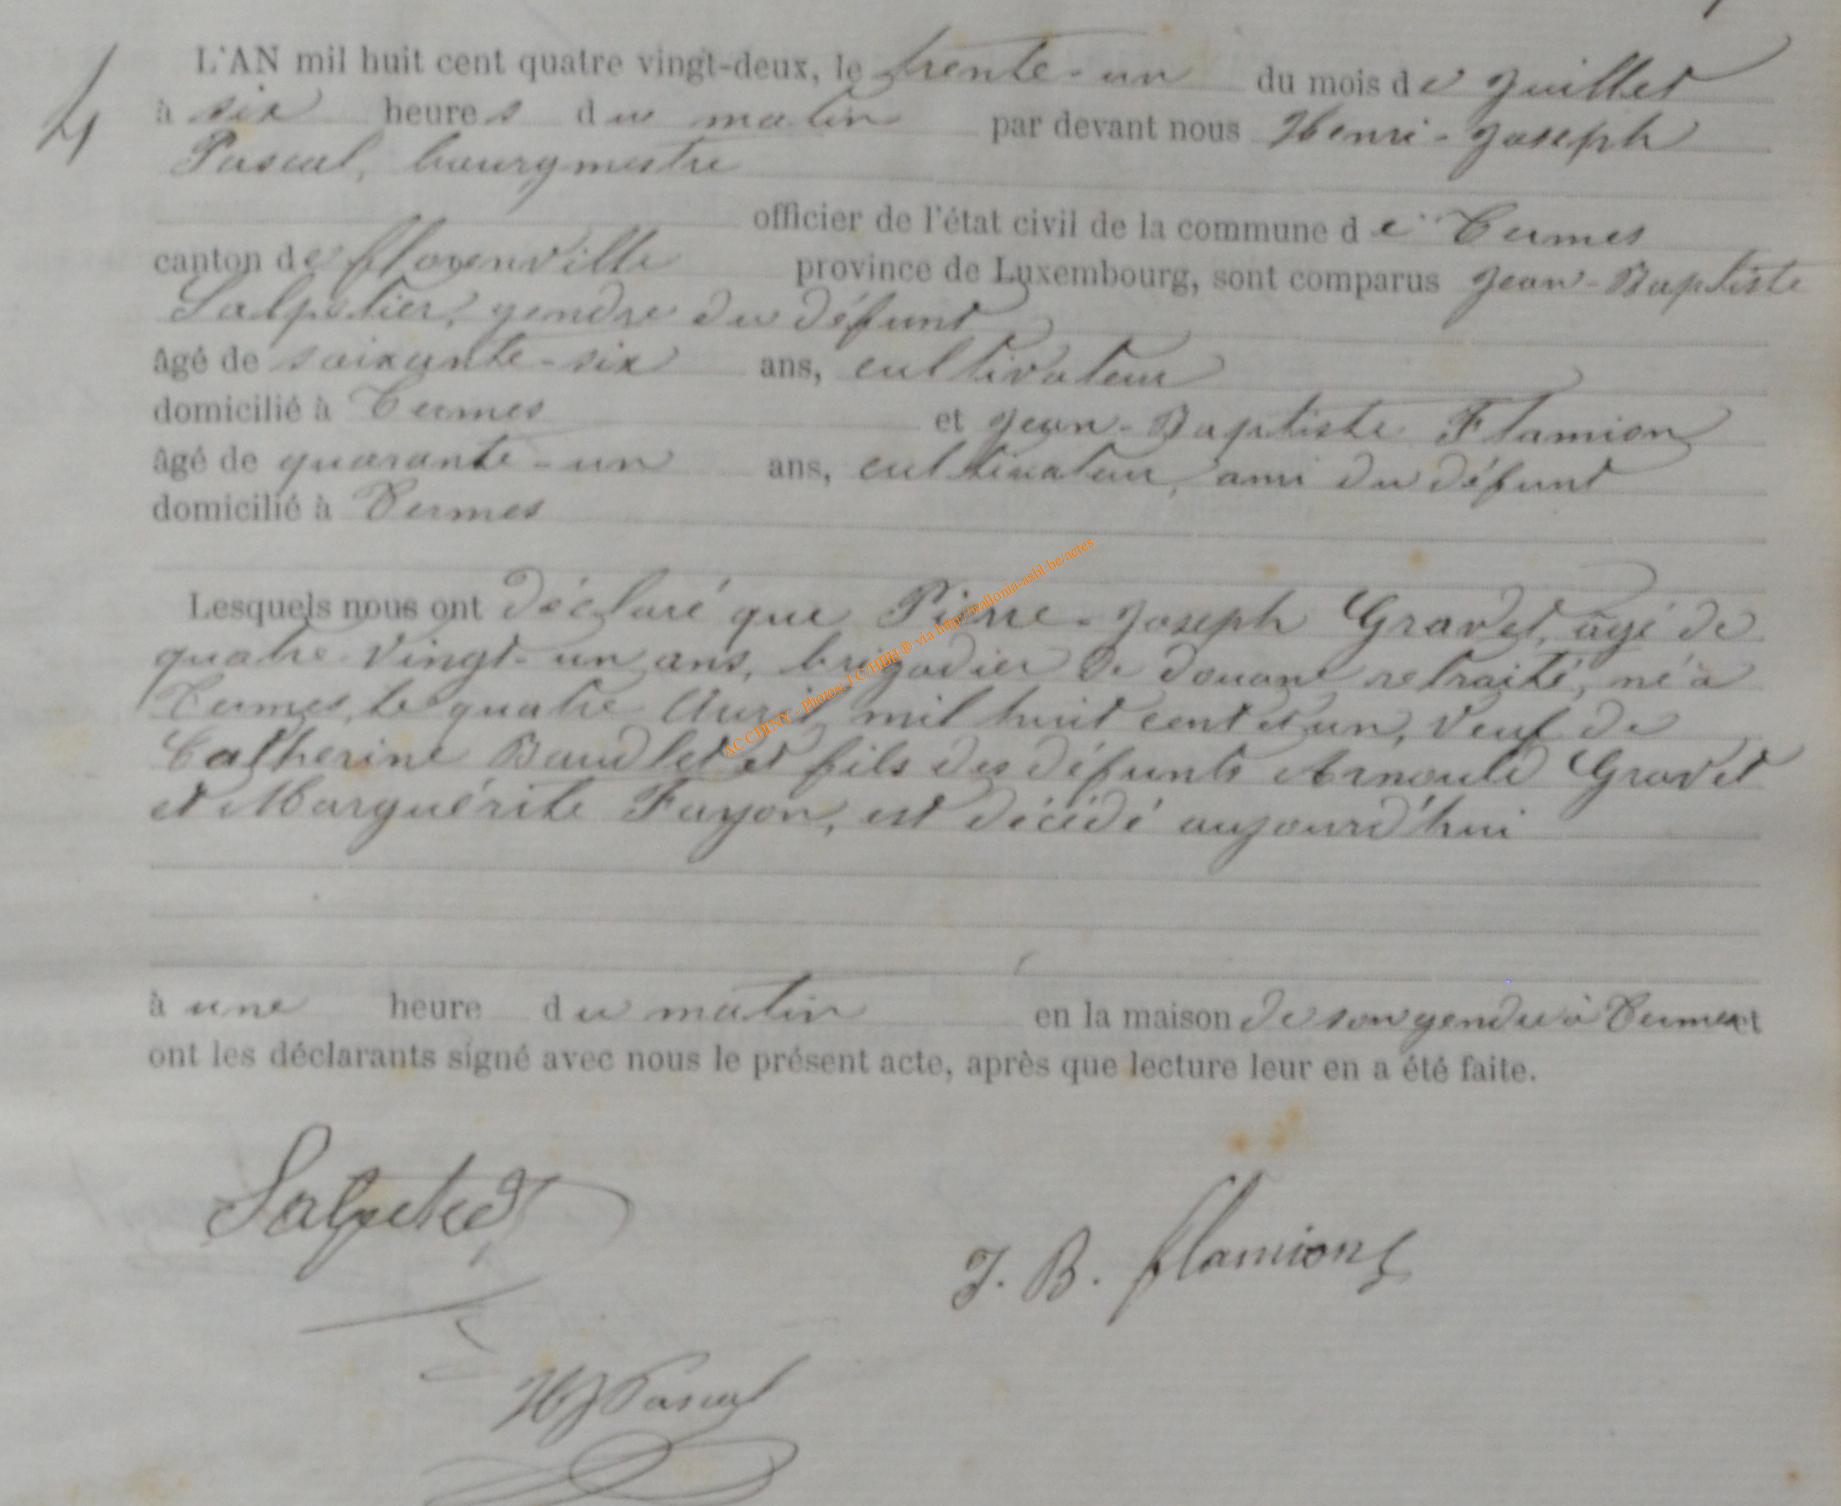 4
L'AN mil huit cent quatre vingt-deux, le trente-un du mois de Juillet
à six heures du matin par devant nous Henri-Joseph
Pascal, bourgmestre
officier de l'état civil de la commune de Termes
canton de florenville province de Luxembourg, sont comparus Jean-Baptiste
Salpetier, gendre du défunt
âgé de soixante-six ans, cultivateur
domicilié à Termes et Jean-Baptiste Flamion
âgé de quarante-un ans, cultivateur, ami du défunt
domicilié à Termes
Lesquels nous ont déclaré que Pierre-Joseph Gravet, âgé de
quatre-vingt-un ans, brigadier de douane retraité, né à
Termes, le quatre Avril mil huit cent et un, veuf de
Catherine Baudlet et fils des défunts Arnould Gravet
et Marguérite Fayon, est décédé aujourd'hui
à une heure du matin en la maison de son gendre à Termes et
ont les déclarants signé avec nous le présent acte, après que lecture leur en a été faite.
Salpetier
J. B. flamion
HJ Pascal